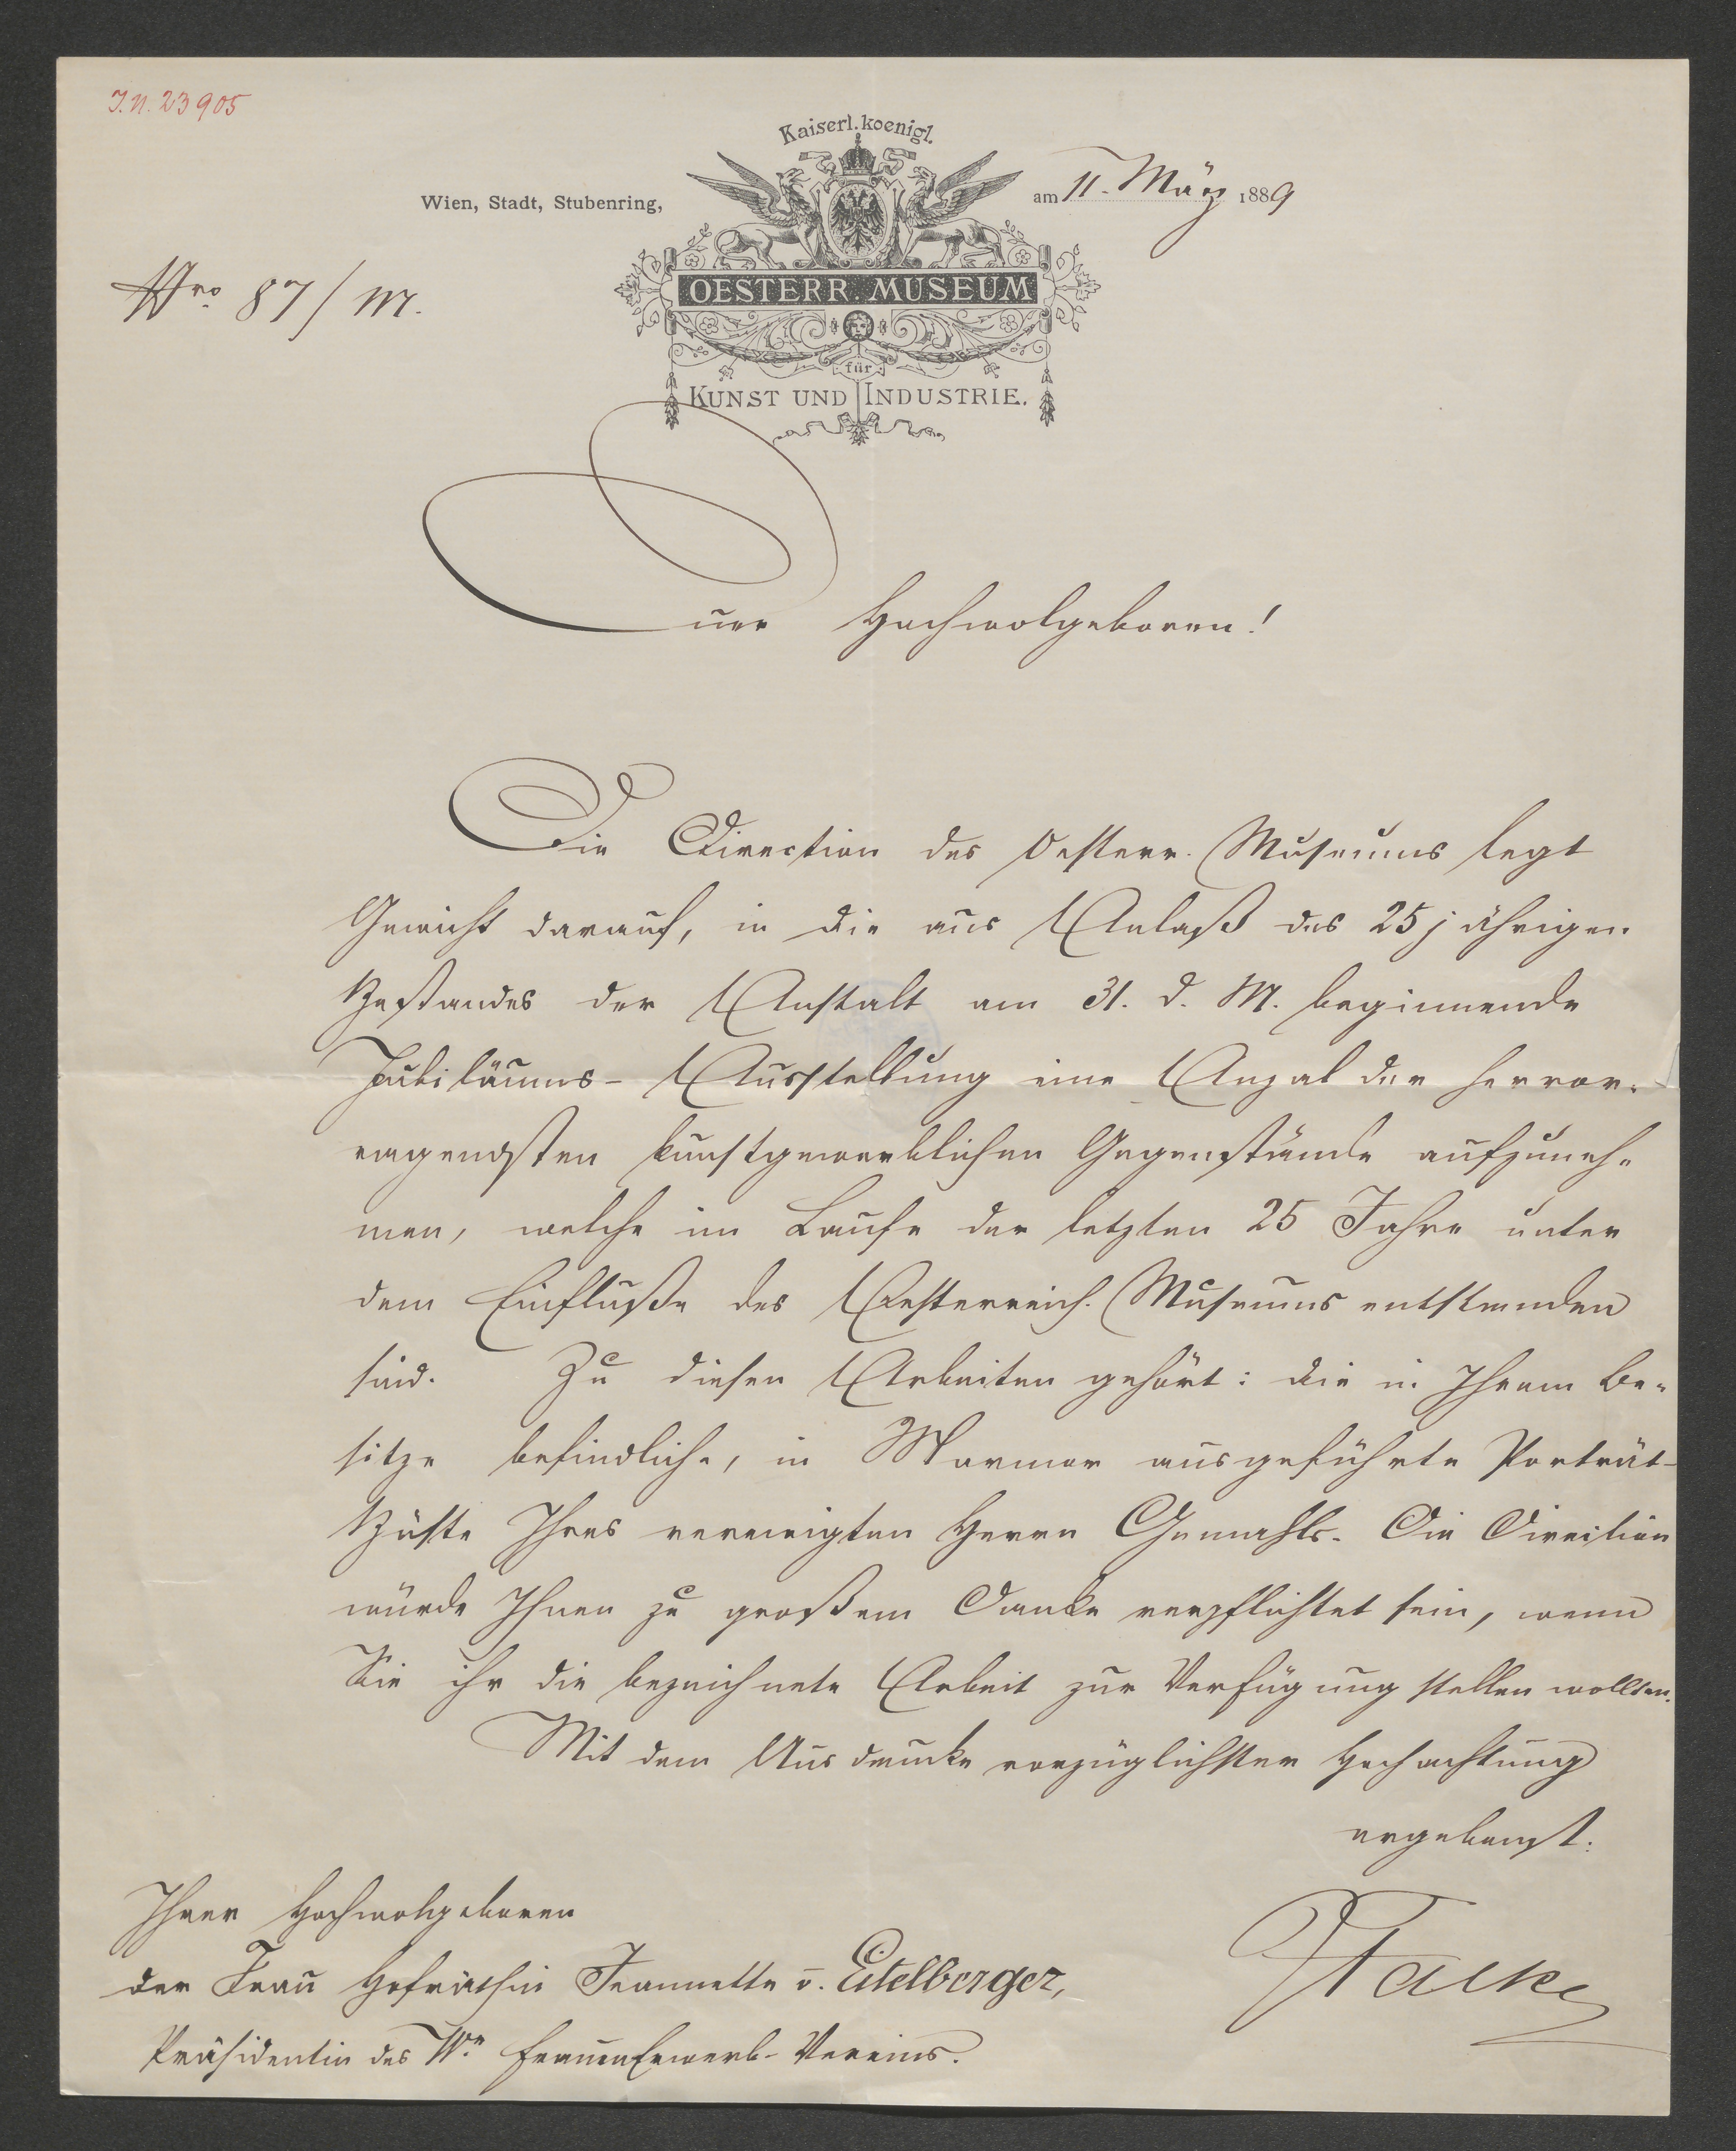 J.N. 23905
Kaiserl. koenigl.
Wien, Stadt, Stubenring,
am 11. März 1889
Nro 87/M.
OESTERR. MUSEUM
für
KUNST UND INDUSTRIE.
Euer Hochwolgeboren!
Die Direction des Oesterr. Museums legt
Gewicht darauf, in die aus Anlaß des 25jährigen
Bestandes der Anstalt am 31. d. M. beginnende
Jubiläums-Ausstellung eine Anzal der hervor-
ragendsten kunstgewerblichen Gegenstände aufzuneh-
men, welche im Laufe der letzten 25 Jahre unter
dem Einfluße des Oesterreich. Museums entstanden
sind. Zu diesen Arbeiten gehört: die in Ihrem Be-
sitze befindliche, in Marmor ausgeführte Porträt-
Büste Ihres verewigten Herrn Gemahls. Die Direction
würde Ihnen zu großem Danke verpflichtet sein, wenn
Sie ihr die bezeichnete Arbeit zur Verfügung stellen wollten.
Mit dem Ausdrucke vorzüglichster Hochachtung
ergebenst:
Ihrer Hochwolgeboren
der Frau Hofräthin Jeannette v. Eitelberger,
JFalke
Präsidentin des Wr. FrauenErwerb-Vereins.